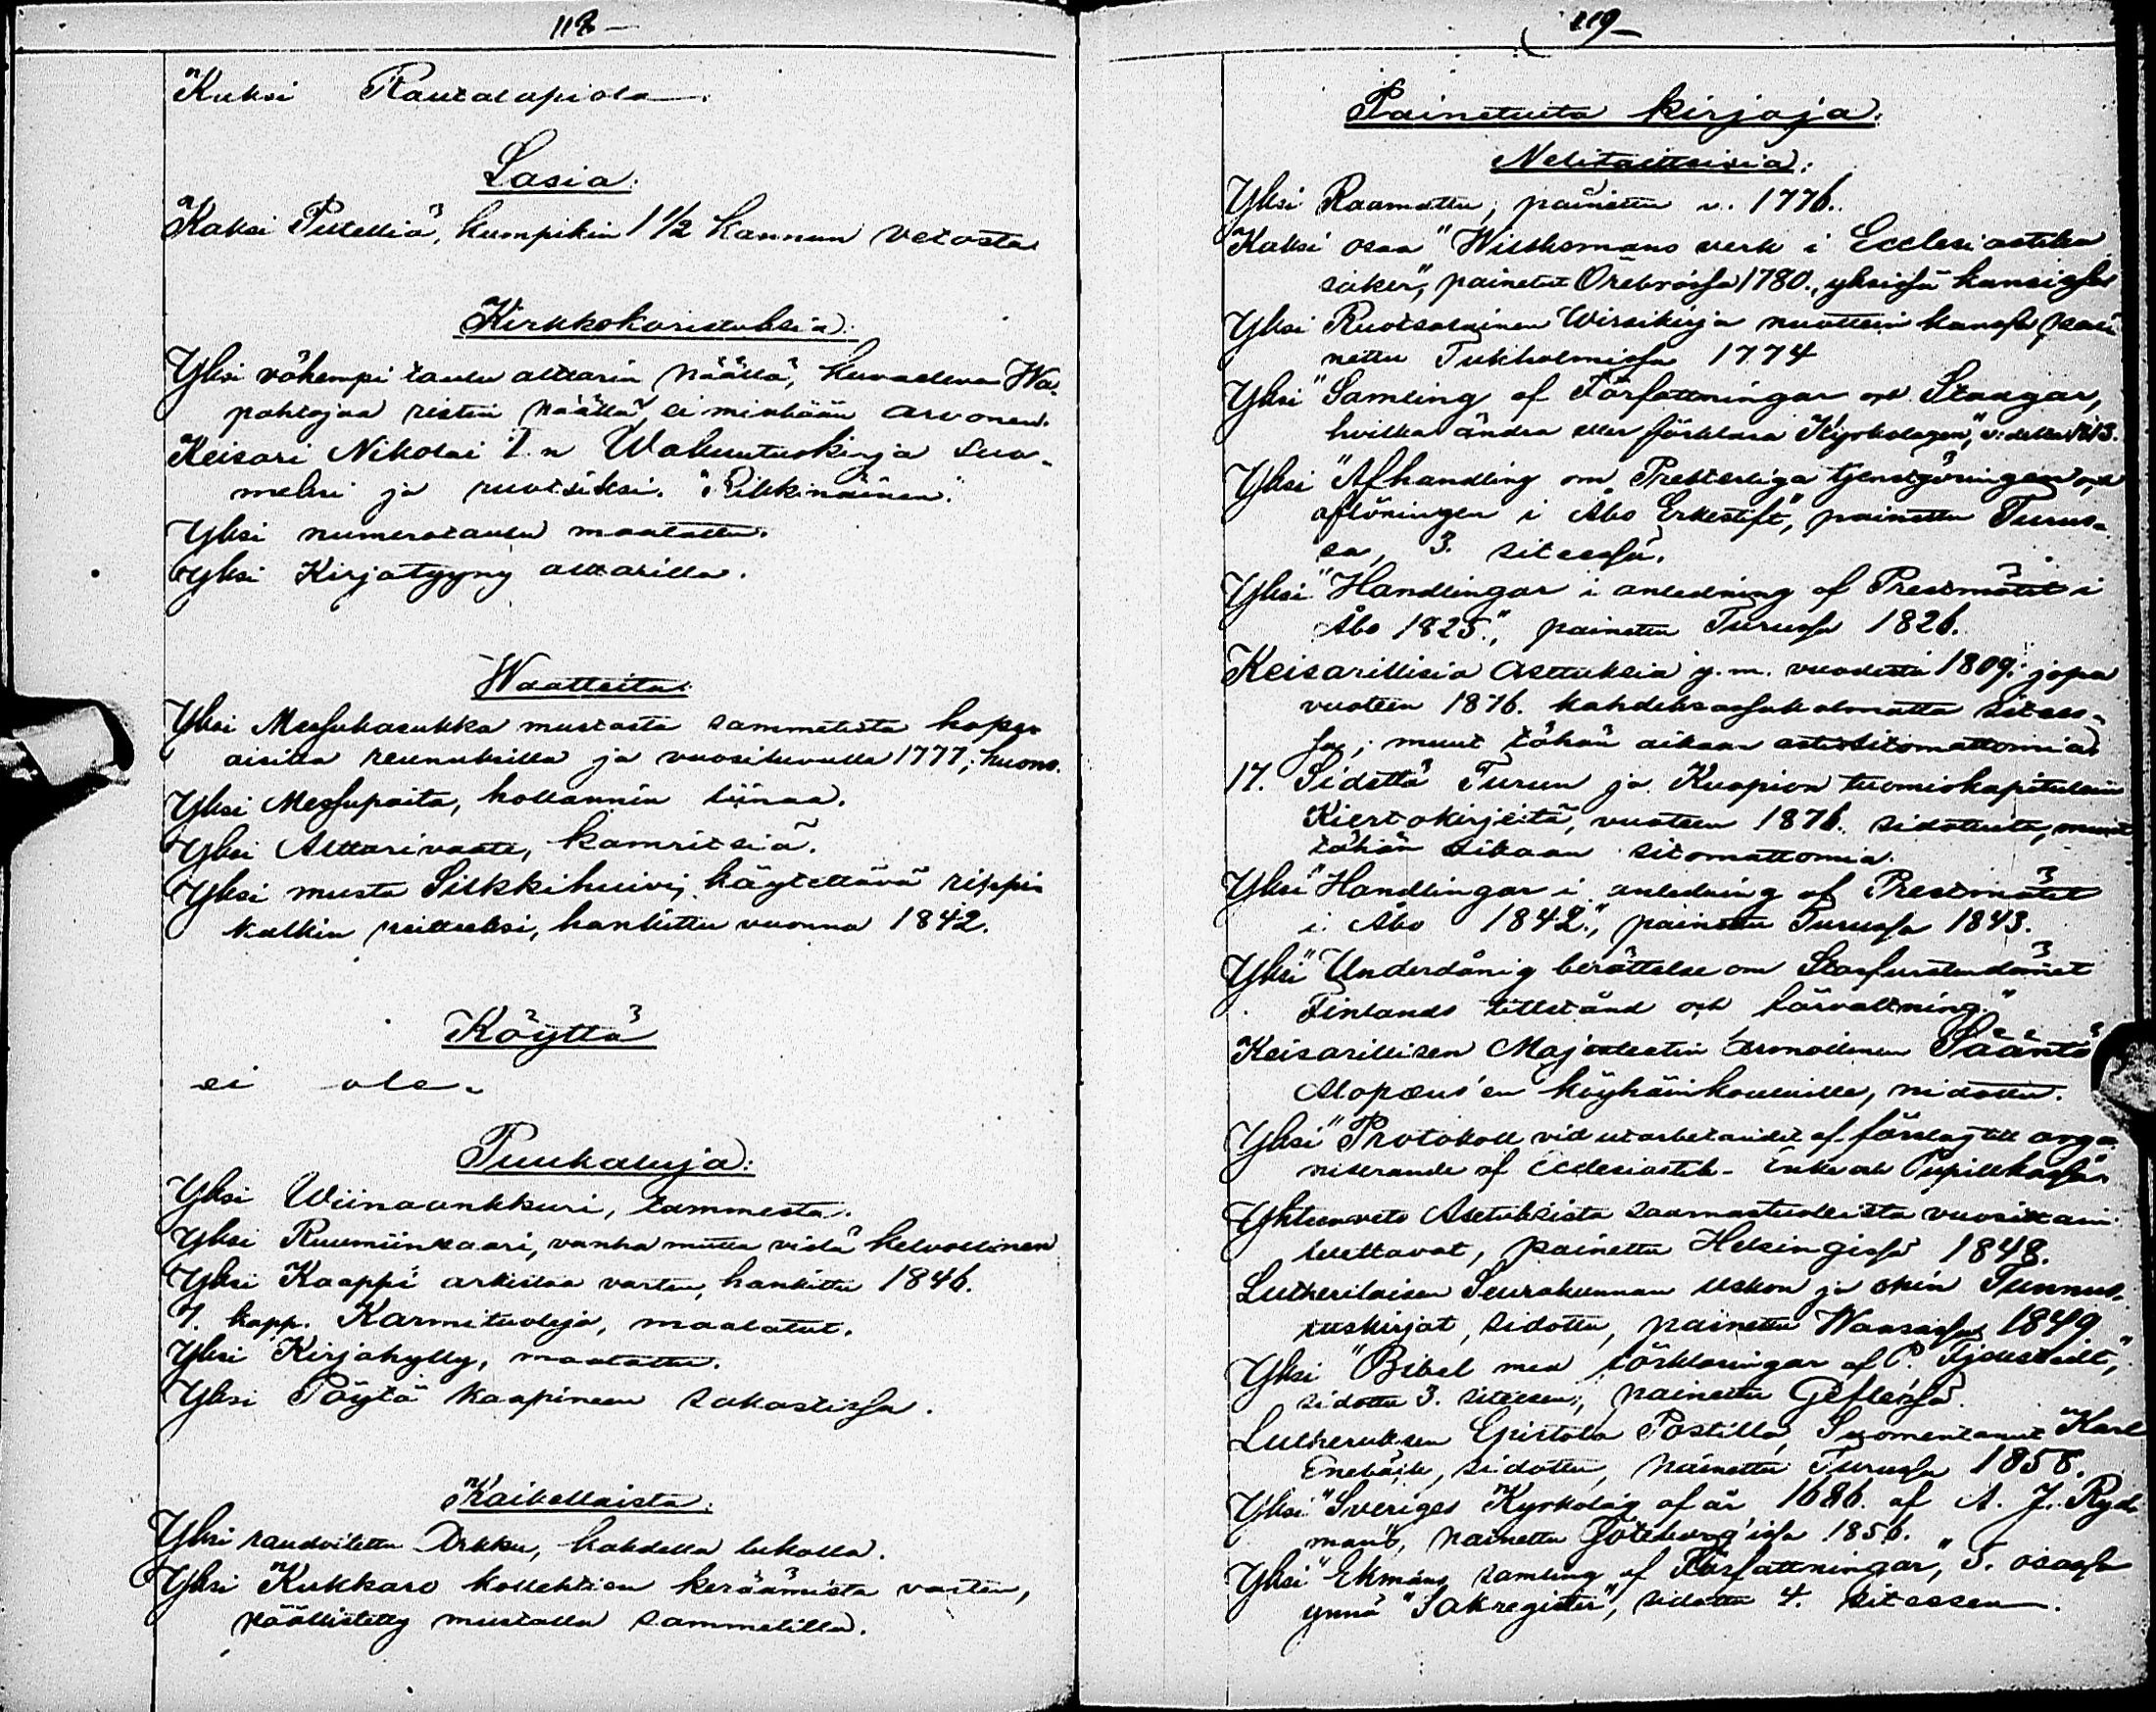 118
Kaksi Rautalapiota
Lasia.
Kaksi Putelliä, kumpikin 1 1/2 kannun vetosta
Kirkkokoristuksia.
Yksi vähempi taulu alttarin päällä, kuvaileva Wa-
pahtajaa ristin päällä, ei minkään arvonen.
Keisari Nikolai I.n Wakuutuskirja suo-
meksi ja ruotsiksi. "Rikkinäinen."
Yksi numerotaulu maalattu.
Yksi Kirjatyyny alttarilla.
Waatteita.
Yksi Messukasukka mustasta sammetista hope-
aisilla reunuksilla ja vuosiluvulla 1777; huono.
Yksi Messupaita, hollannin liinaa.
Yksi Alttarivaate, kamritsiä.
Yksi musta Silkkihuivi, käytettävä rippi-
kalkin peitteeksi, hankittu vuonna 1842.
Köyttä
ei ole.
Puukaluja:
Yksi Wiinaankkuri, tammesta.
Yksi Ruumiinpaari, vanha mutta vielä kelvollinen
Yksi Kaappi arkistoa varten, hankittu 1846.
7. kapp. Karmituoleja, maalatut.
Yksi Kirjahylly, maalattu.
Yksi Pöytä kaapineen sakastissa.
Kaikellaista.
Yksi raudoitettu Arkku, kahdella lukolla.
Yksi Kukkaro kollehtien keräämistä varten,
päällistetty mustalla sammetilla.
119
Painetuita kirjoja.
Nelitaitteisia:
Yksi Raamattu, painettu v. 1776.
Kaksi osaa "Wilskmans verk i Ecclesiastika
saker", painetut Örebrossa 1780., yksissä kansissa
Yksi Ruotsalainen Wirsikirja nuottein kanssa, pai-
nettu Tukholmissa 1774
Yksi "Samling af Författningar och Stadgar,
hvilka ändra eller förklara Kyrkolagen,"
Yksi "Afhandling om Presterliga tjenstgöringen och
aflöningen i Åbo Erkestift", painettu Turus-
sa, 3. siteessä.
Yksi "Handlingar i anledning af Prestmötet i
Åbo 1825.", painettu Turussa 1826.
Keisarillisia Asetuksia y.m. vuodesta 1809. jopa
vuoteen 1876. kahdeksassakolmatta sitees-
sä; muut tähän aikaan asti sitomattomia
17. Sidettä Turun ja Kuopion tuomiokapitulein
Kiertokirjeitä, vuoteen 1876. sidottuita, muut
tähän aikaan sitomattomia.
Yksi "Handlingar i anledning af Prestmötet
i Åbo 1842.", painettu Turussa 1843.
Yksi "Underdånig berättelse om Storfurstendömet
Finlands tillstånd och förvaltning."
Keisarillisen Majesteetin Armollinen Sääntö
Alopæus'en köyhäinkouluille, nidottu.
Yksi "Protokoll vid utarbetandet af förslag till orga-
niserande af Ecclesiastik- Enke och Pupillkassa"
Yhteenveto Asetuksista saarnastuolista vuosittain
luettavat, painettu Helsingissä 1848.
Lutherilaisen Seurakunnan uskon ja opin Tunnus-
tuskirjat, sidottu, painettu Waasassa 1849
Yksi "Bibel med förklaringar af P. Fjellstedt,"
sidottu 3. siteesen, painettu Gefle'ssä.
Lutheruksen Epistola Postilla, Suomentanut Karl
Enebäck, sidottu, painettu Turussa 1858.
Yksi "Sveriges Kyrkolag af år 1686. af A. J. Ryd-
man", painettu Göteborg'issa 1856.
Yksi "Ekmans samling af Författningar," 5. osassa
ynnä "Sakregister", sidottu 4. siteesen.